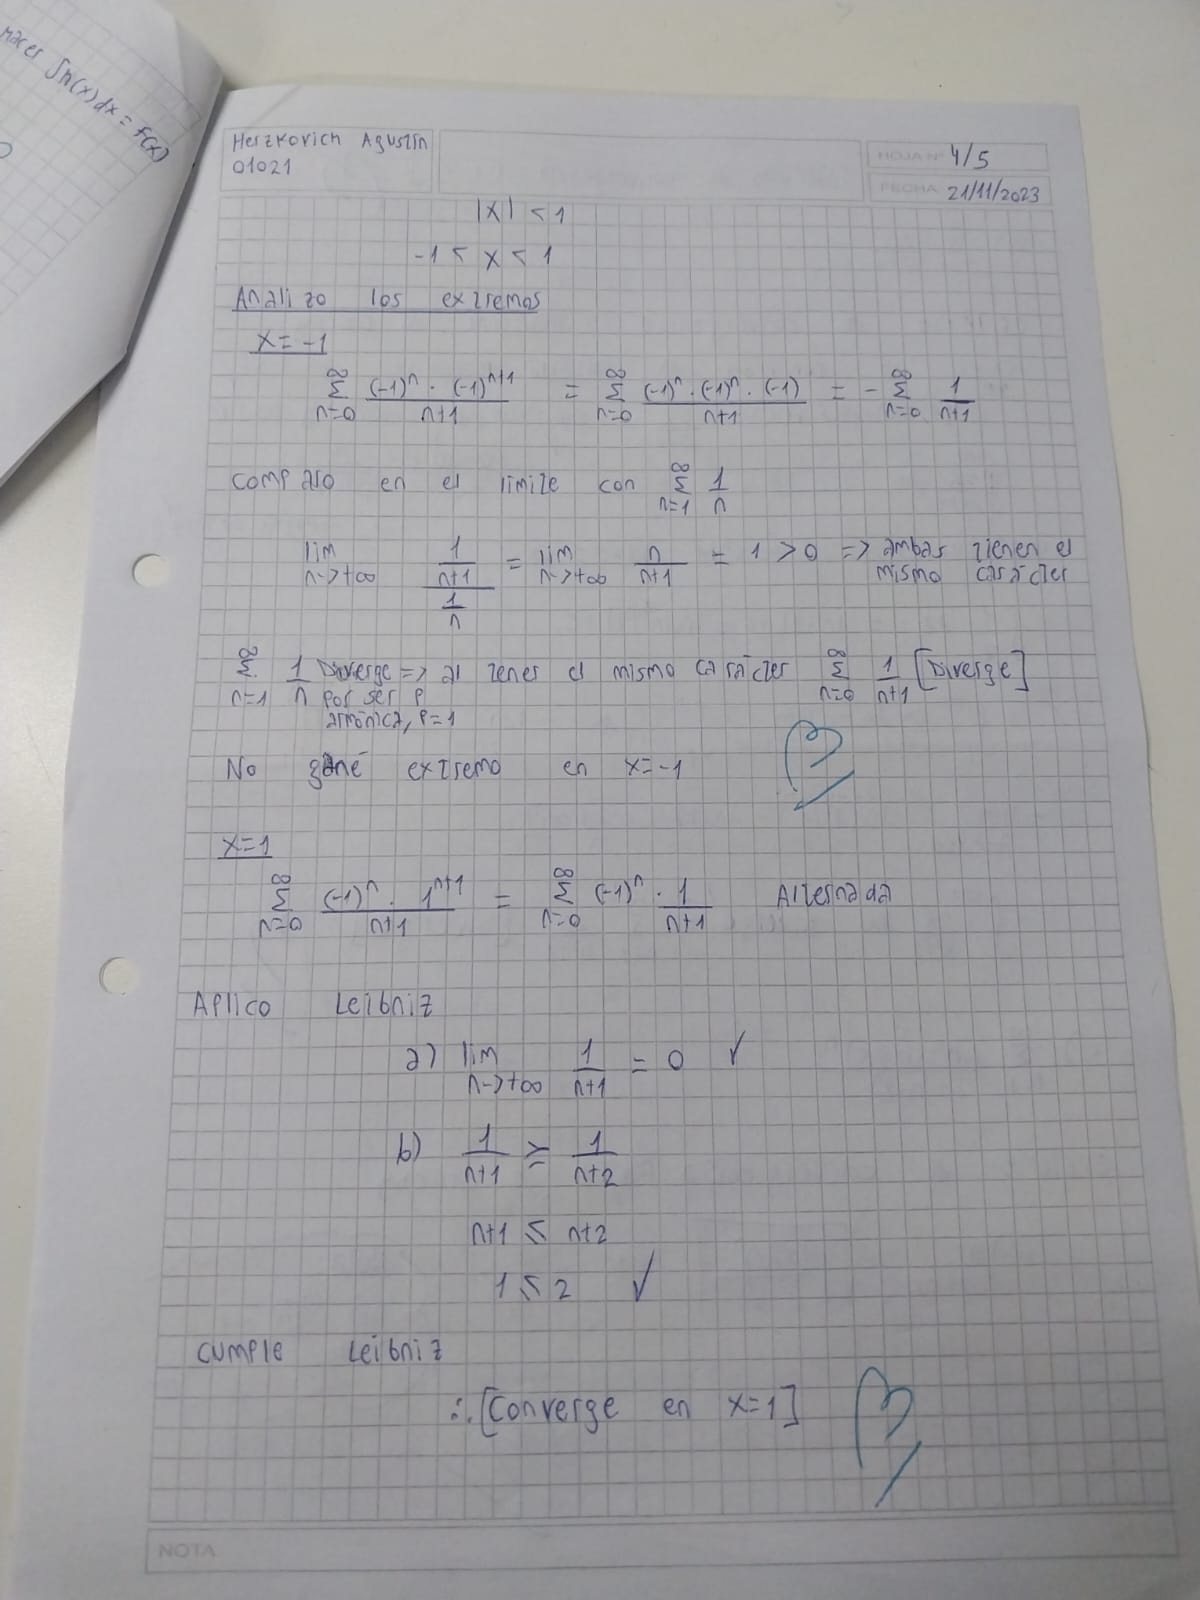 hacer ∫h(x)dx = f(x)
Herzkovich Agustín
01021
HOJA Nº 4/5
FECHA 21/11/2023
|x| < 1
-1 < x < 1
Analizo los extremos
x = -1
∑_{n=0}^{∞} (-1)^n · (-1)^{n+1} / (n+1) = ∑_{n=0}^{∞} (-1)^n · (-1)^n · (-1) / (n+1) = -∑_{n=0}^{∞} 1/(n+1)
comparo en el limite con ∑_{n=1}^{∞} 1/n
lim_{n->+∞} (1/(n+1)) / (1/n) = lim_{n->+∞} n/(n+1) = 1 > 0 => ambas tienen el
mismo carácter
∑_{n=1}^{∞} 1/n Diverge => al tener el mismo carácter ∑_{n=0}^{∞} 1/(n+1) [Diverge]
por ser P
armónica, P=1
No gané extremo en x=-1
x=1
∑_{n=0}^{∞} (-1)^n · 1^{n+1} / (n+1) = ∑_{n=0}^{∞} (-1)^n · 1/(n+1) Alternada
Aplico Leibniz
a) lim_{n->+∞} 1/(n+1) = 0 ✓
b) 1/(n+1) ≥ 1/(n+2)
n+1 ≤ n+2
1 ≤ 2 ✓
cumple Leibniz
∴ [Converge en x=1]
NOTA